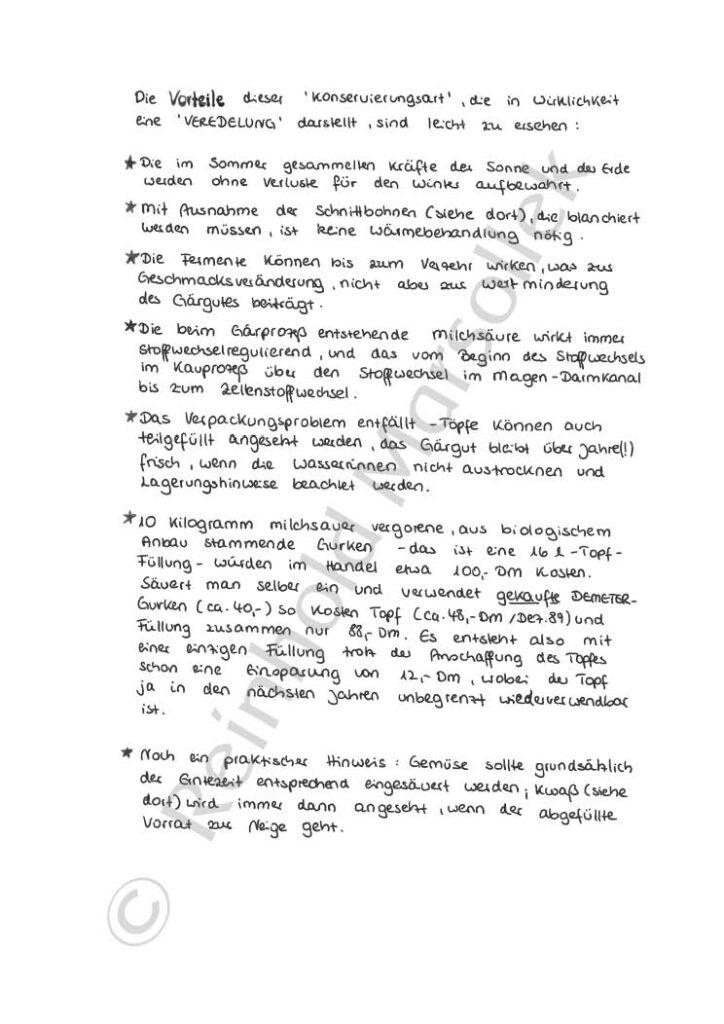 Die Vorteile dieser 'Konservierungsart', die in Wirklichkeit
eine 'VEREDELUNG' darstellt, sind leicht zu ersehen:
★ Die im Sommer gesammelten Kräfte der Sonne und der Erde
werden ohne Verluste für den Winter aufbewahrt.
★ Mit Ausnahme der Schnittbohnen (siehe dort), die blanchiert
werden müssen, ist keine Wärmebehandlung nötig.
★ Die Fermente können bis zum Verzehr wirken, was zur
Geschmacksveränderung, nicht aber zur Wertminderung
des Gärgutes beiträgt.
★ Die beim Gärprozeß entstehende Milchsäure wirkt immer
stoffwechselregulierend, und das vom Beginn des Stoffwechsels
im Kauprozeß über den Stoffwechsel im Magen-Darmkanal
bis zum Zellenstoffwechsel.
★ Das Verpackungsproblem entfällt - Töpfe können auch
teilgefüllt angesetzt werden, das Gärgut bleibt über Jahre(!)
frisch, wenn die Wasserrinnen nicht austrocknen und
Lagerungshinweise beachtet werden.
★ 10 Kilogramm milchsauer vergorene, aus biologischem
Anbau stammende Gurken - das ist eine 16 l-Topf-
Füllung - würden im Handel etwa 100,- DM kosten.
Säuert man selber ein und verwendet gekaufte DEMETER-
Gurken (ca. 40,-) so kosten Topf (ca. 48,- DM / Dez. 89) und
Füllung zusammen nur 88,- DM. Es entsteht also mit
einer einzigen Füllung trotz der Anschaffung des Topfes
schon eine Einsparung von 12,- DM, wobei der Topf
ja in den nächsten Jahren unbegrenzt wiederverwendbar
ist.
★ Noch ein praktischer Hinweis: Gemüse sollte grundsätzlich
der Erntezeit entsprechend eingesäuert werden; Kwaß (siehe
dort) wird immer dann angesetzt, wenn der abgefüllte
Vorrat zur Neige geht.
© Reinhold Marsollek